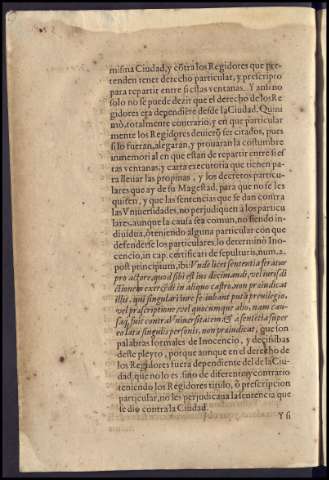 misma Ciudad, y cõtra los Regidores que pre-
tenden tener derecho particular, y prescripto
para repartir entre si estas ventanas. Y ansi no
solo no se puede dezir que el derecho de los Re-
gidores era dependiẽte desde la Ciudad. Quini
mò, totalmente contrario, y en que particular
mente los Regidores deuierõ ser citados, pues
si lo fueran, alegaran, y prouaran la costumbre
inmemorial en que estan de repartir entre si es-
tas ventanas, y carta executoria que tienen pa-
ra lleuar las propinas, y los decretos particu-
lares que ay de su Magestad, para que no se les
quiten, y que las sentencias que se dan contra
las Vniuersidades, no perjudiquen à los particu
lares, aunque la causa sea comun, no siendo in-
diuidua, ò teniendo alguna particular con que
defenderse los particulares, lo determinò Ino-
cencio, in cap. certificari de sepulturis, num. 2.
post principium, ibi: Vnde licet sententia feratur
pro actore, quod sibi est ius decimandi, vel iurisdi
ctionem exercẽdi in aliquo castro, non præiudicat
illis, qui singulari iure se iubant putà preuilegio,
vel præscriptione, vel quocumque alio, nam cau-
sa, fuit contra Vniuersitatem, & sententia super
eo lata singulis personis, non præiudicat, que son
palabras formales de Inocencio, y decisibas
deste pleyto, porque aunque en el derecho de
los Regidores fuera dependiente del de la Ciu-
dad, que no lo es, sino diferente, y contrario
teniendo los Regidores titulo, ò prescripcion
particular, no les perjudicaua la sentencia que
se diò contra la Ciudad.
Y si